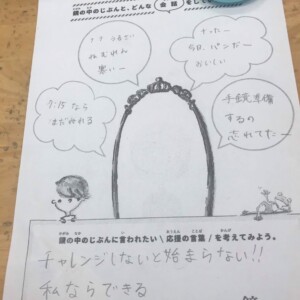 鏡の中のじぶんと、どんな会話をし
うるさい
ねむれん
寒いー
やったー
今日、パンだー
おいしい
7:15なら
まだねれる
手鏡準備
するの
忘れてたー
鏡の中のじぶんに言われたい\応援の言葉/を考えてみよう。
チャレンジしないと始まらない!!
私ならできる